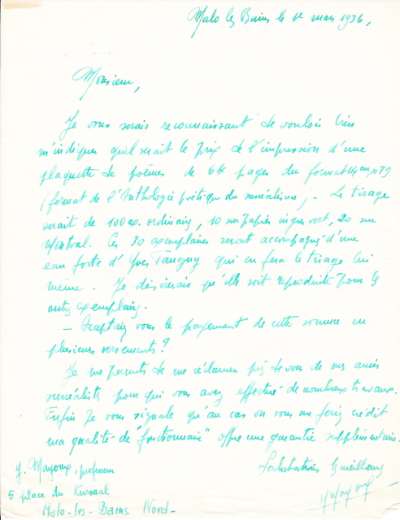 Malo les Bains le 1er mars 1936,
Monsieur,
Je vous serais reconnaissant de vouloir bien
m'indiquer quel serait le prix de l'impression d'une
plaquette de poèmes de 64 pages du format
(format de l'Anthologie poétique du surréalisme). - Le tirage
serait de 100 ex. ordinaires, 10 sur papier ingres vert, 20 sur
. Ces 30 exemplaires seront accompagnés d'une
eau forte d'Yves Tanguy qui en fera le tirage lui
même. Je désirerais qu'elle soit reproduite pour les
autres exemplaires.
- Acceptez vous le payement de cette somme en
plusieurs versements?
Je me permets de me réclamer près de vous de vos amis
surréalistes pour qui vous avez effectué de nombreux travaux.
Enfin je vous signale qu'au cas où vous me feriez crédit
ma qualité de "fonctionnaire" offre une garantie supplémentaire.
Salutations
J. Mayoux, professeur
5 place du Kursaal
Malo-les-Bains Nord-